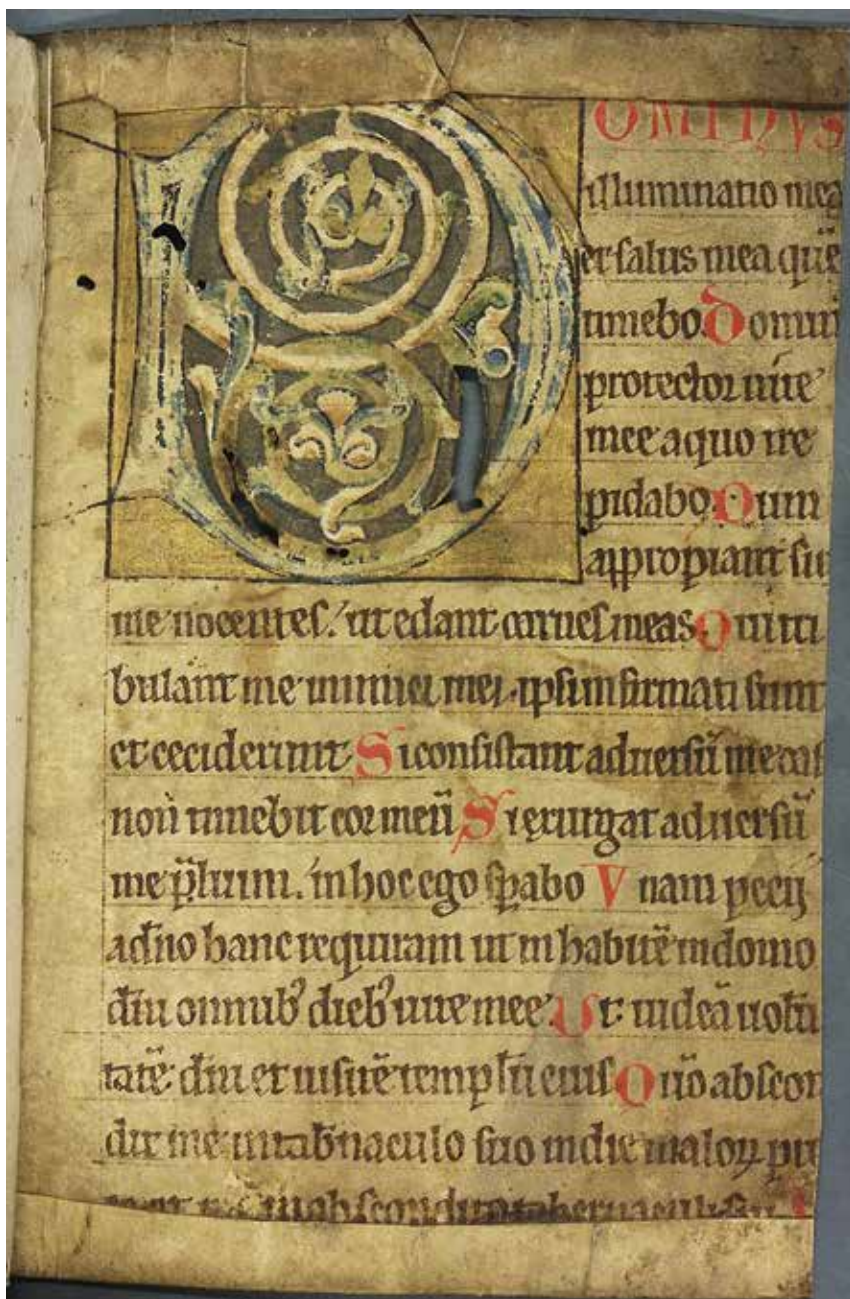 DOMINVS
illuminatio mea
et salus mea quē
timebo Domin
protector uite
mee a quo tre
pidabo. Dum
appropiant su
me nocentes. ut edant carnes meas. Qui tri
bulant me inimici mei. ipsi infirmati sunt
et ceciderunt Si consistant aduersū me cas
non timebit cor meū Si exurgat aduersū
me p̄lium. in hoc ego sꝑabo Vnam pecij
a dn̄o hanc requiram ut inhabitē in domo
dn̄i omnibꝰ diebꝰ uite mee. Vt uideā uolū
tatē dn̄i et uisitē templū eius Qnō abscon
dit me in tab̄naculo suo in die maloꝝ p
in abscondito tabernaculi sui